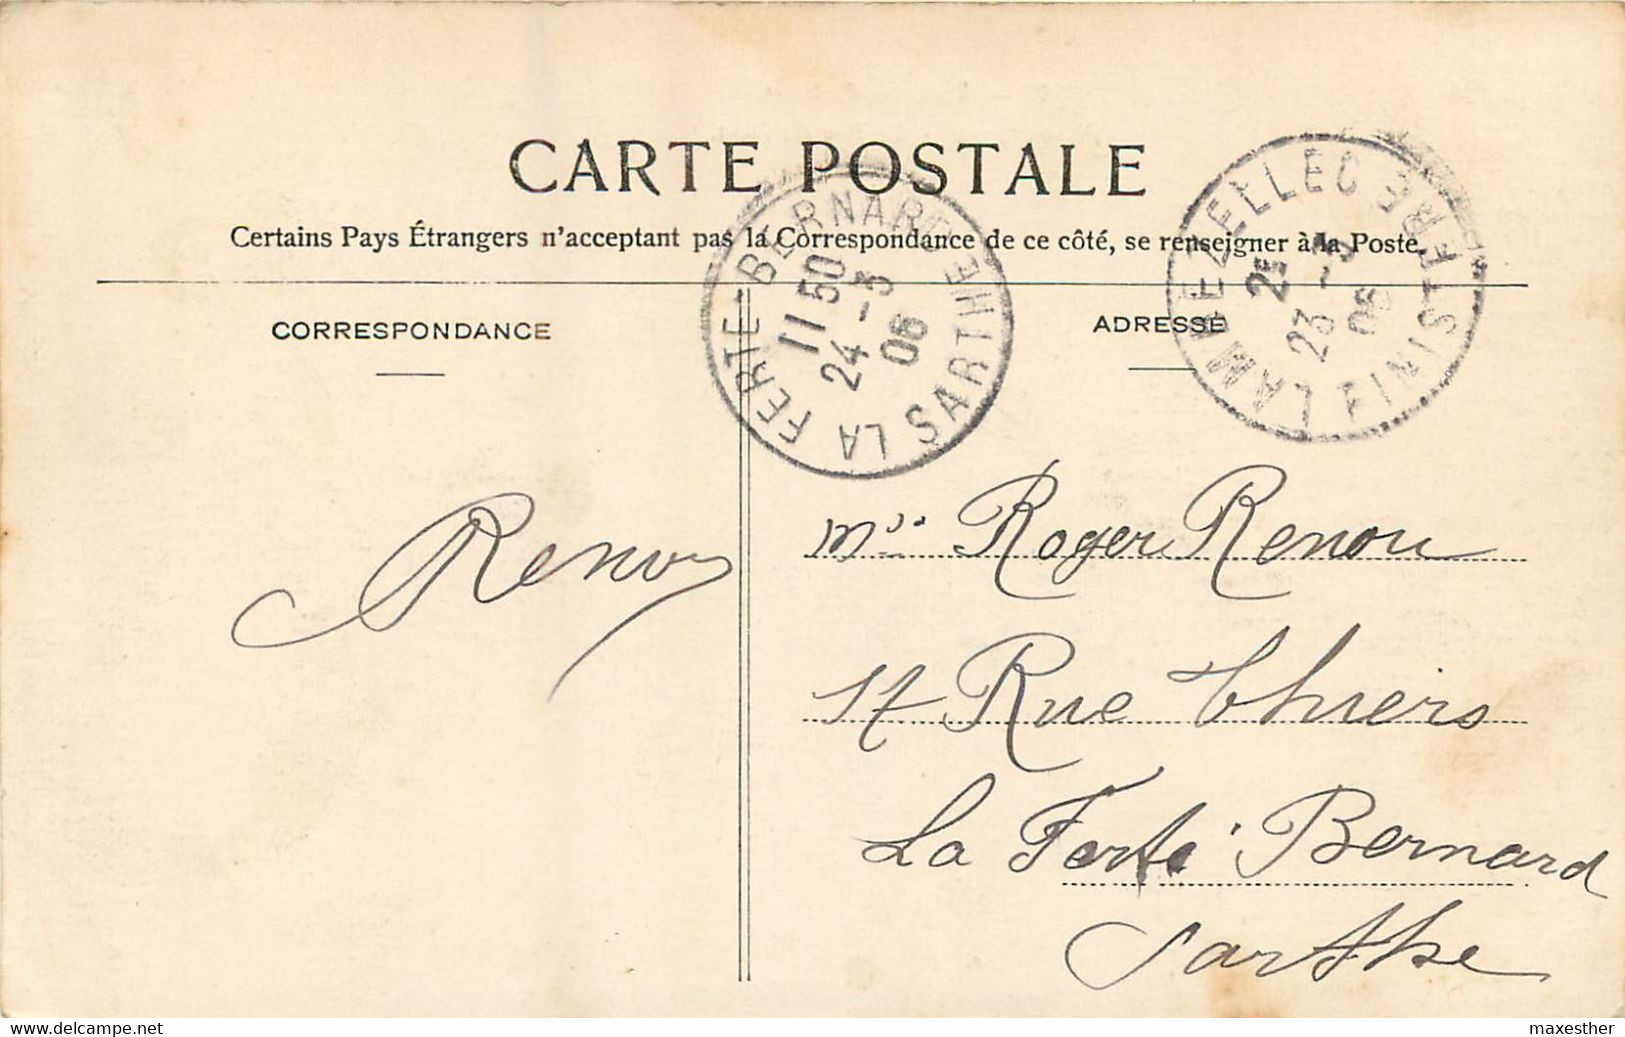 CARTE POSTALE
Certains Pays Étrangers n'acceptant pas la Correspondance de ce côté, se renseigner à la Poste.
LA FERTE-BERNARD SARTHE
11 50
24 -3
06
LAMBEZELLEC FINISTERE
23 -3
06
CORRESPONDANCE
ADRESSE
Renou
Roger Renou
17 Rue Thiers
La Ferté Bernard
Sarthe
www.delcampe.net
maxesther